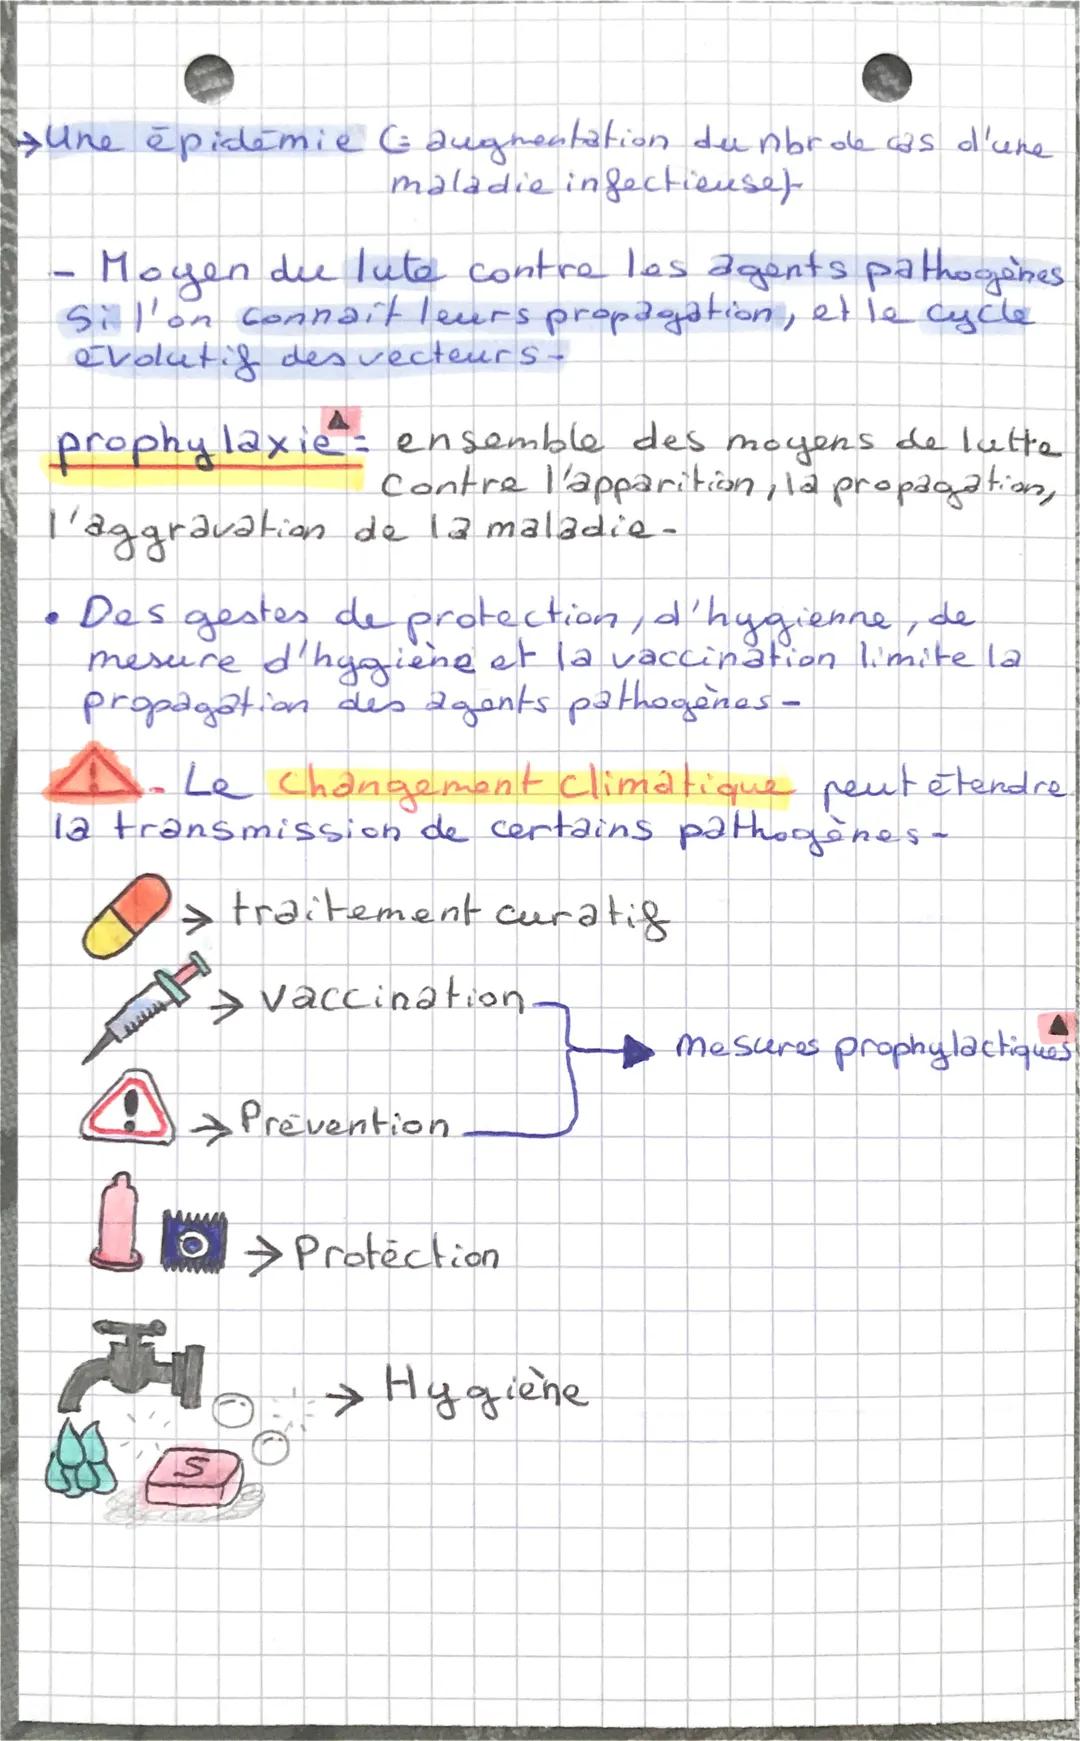 → Une épidémie (= augmentation du nbr de cas d'une
maladie infectieuse)-
- Moyen du lute contre les agents pathogènes
Si l'on connaît leurs propagation, et le cycle
évolutif des vecteurs -
prophylaxie▲ = ensemble des moyens de lutte
contre l'apparition, la propagation,
l'aggravation de la maladie -
• Des gestes de protection, d'hygienne, de
mesure d'hygiène et la vaccination limite la
propagation des agents pathogènes -
- Le changement climatique peut étendre
la transmission de certains pathogènes -
→ traitement curatif
→ vaccination
→ mesures prophylactiques▲
→ Prévention
→ Protéction
→ Hygiène
S